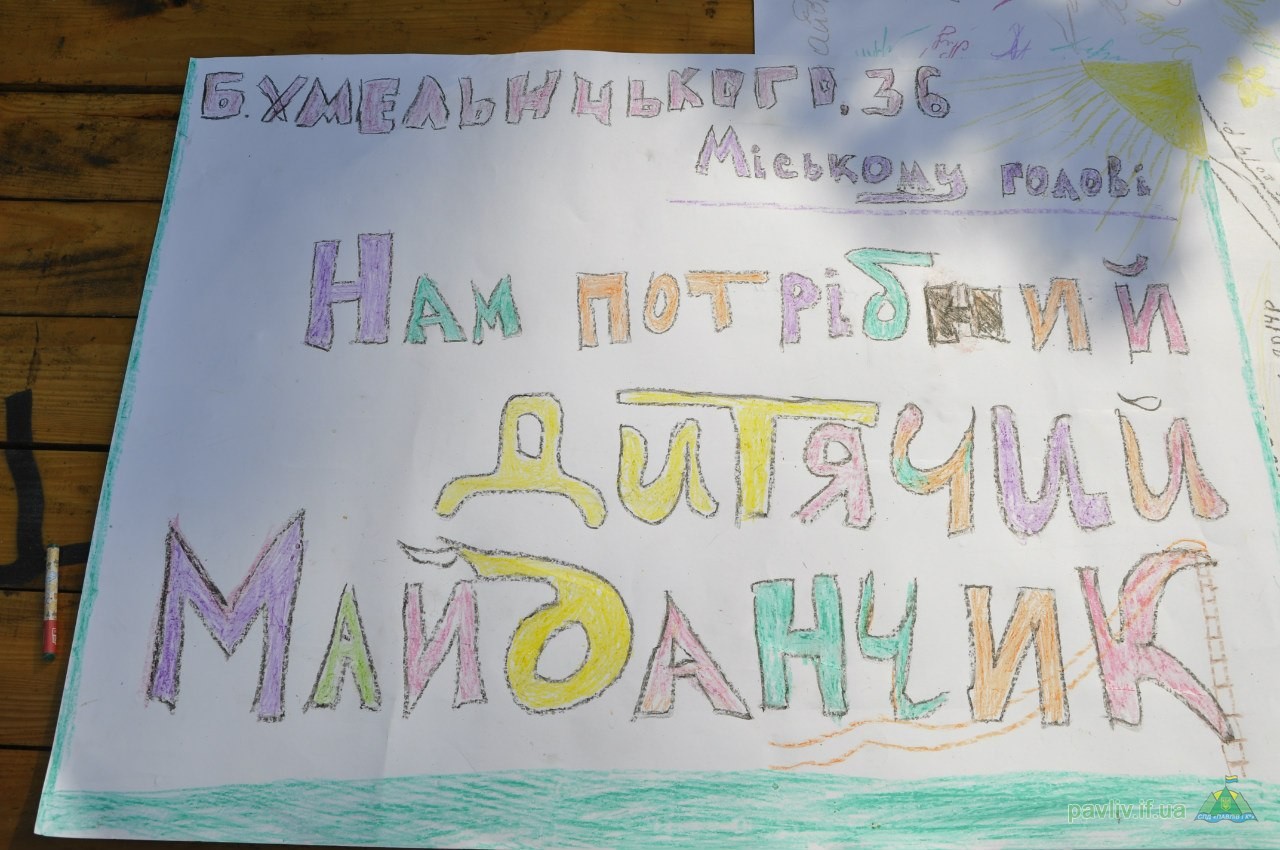 Б. ХМЕЛЬНИЦЬКОГО, 36
Міському голові
Нам потрібний
дитячий
Майданчик
pavliv.if.ua